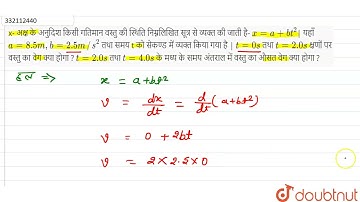 332112440
x- अक्ष के अनुदिश किसी गतिमान वस्तु की स्थिति निम्नलिखित सूत्र से व्यक्त की जाती है- x = a + bt²| यहाँ
a = 8.5m, b = 2.5m/s² तथा समय t को सेकण्ड में व्यक्त किया गया है | t = 0s तथा t = 2.0s क्षणों पर
वस्तु का वेग क्या होगा ? t = 2.0s तथा t = 4.0s के मध्य के समय अंतराल में वस्तु का औसत वेग क्या होगा ?
हल ⇒ x = a+bt²
v = dx/dt = d/dt (a+bt²)
v = 0 + 2bt
v = 2×2.5×0
doubtnut